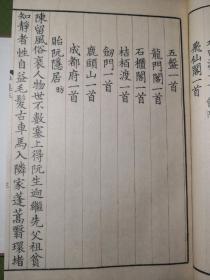 飛仙閣一首
五盤一首
龍門閣一首
石櫃閣一首
桔柏渡一首
劍門一首
鹿頭山一首
成都府一首
貽阮隱居昉
陳留風俗衰人物世不數塞上得阮生迥繼先父祖貧
知靜者性自益毛髮古車馬入隣家蓬蒿翳環堵